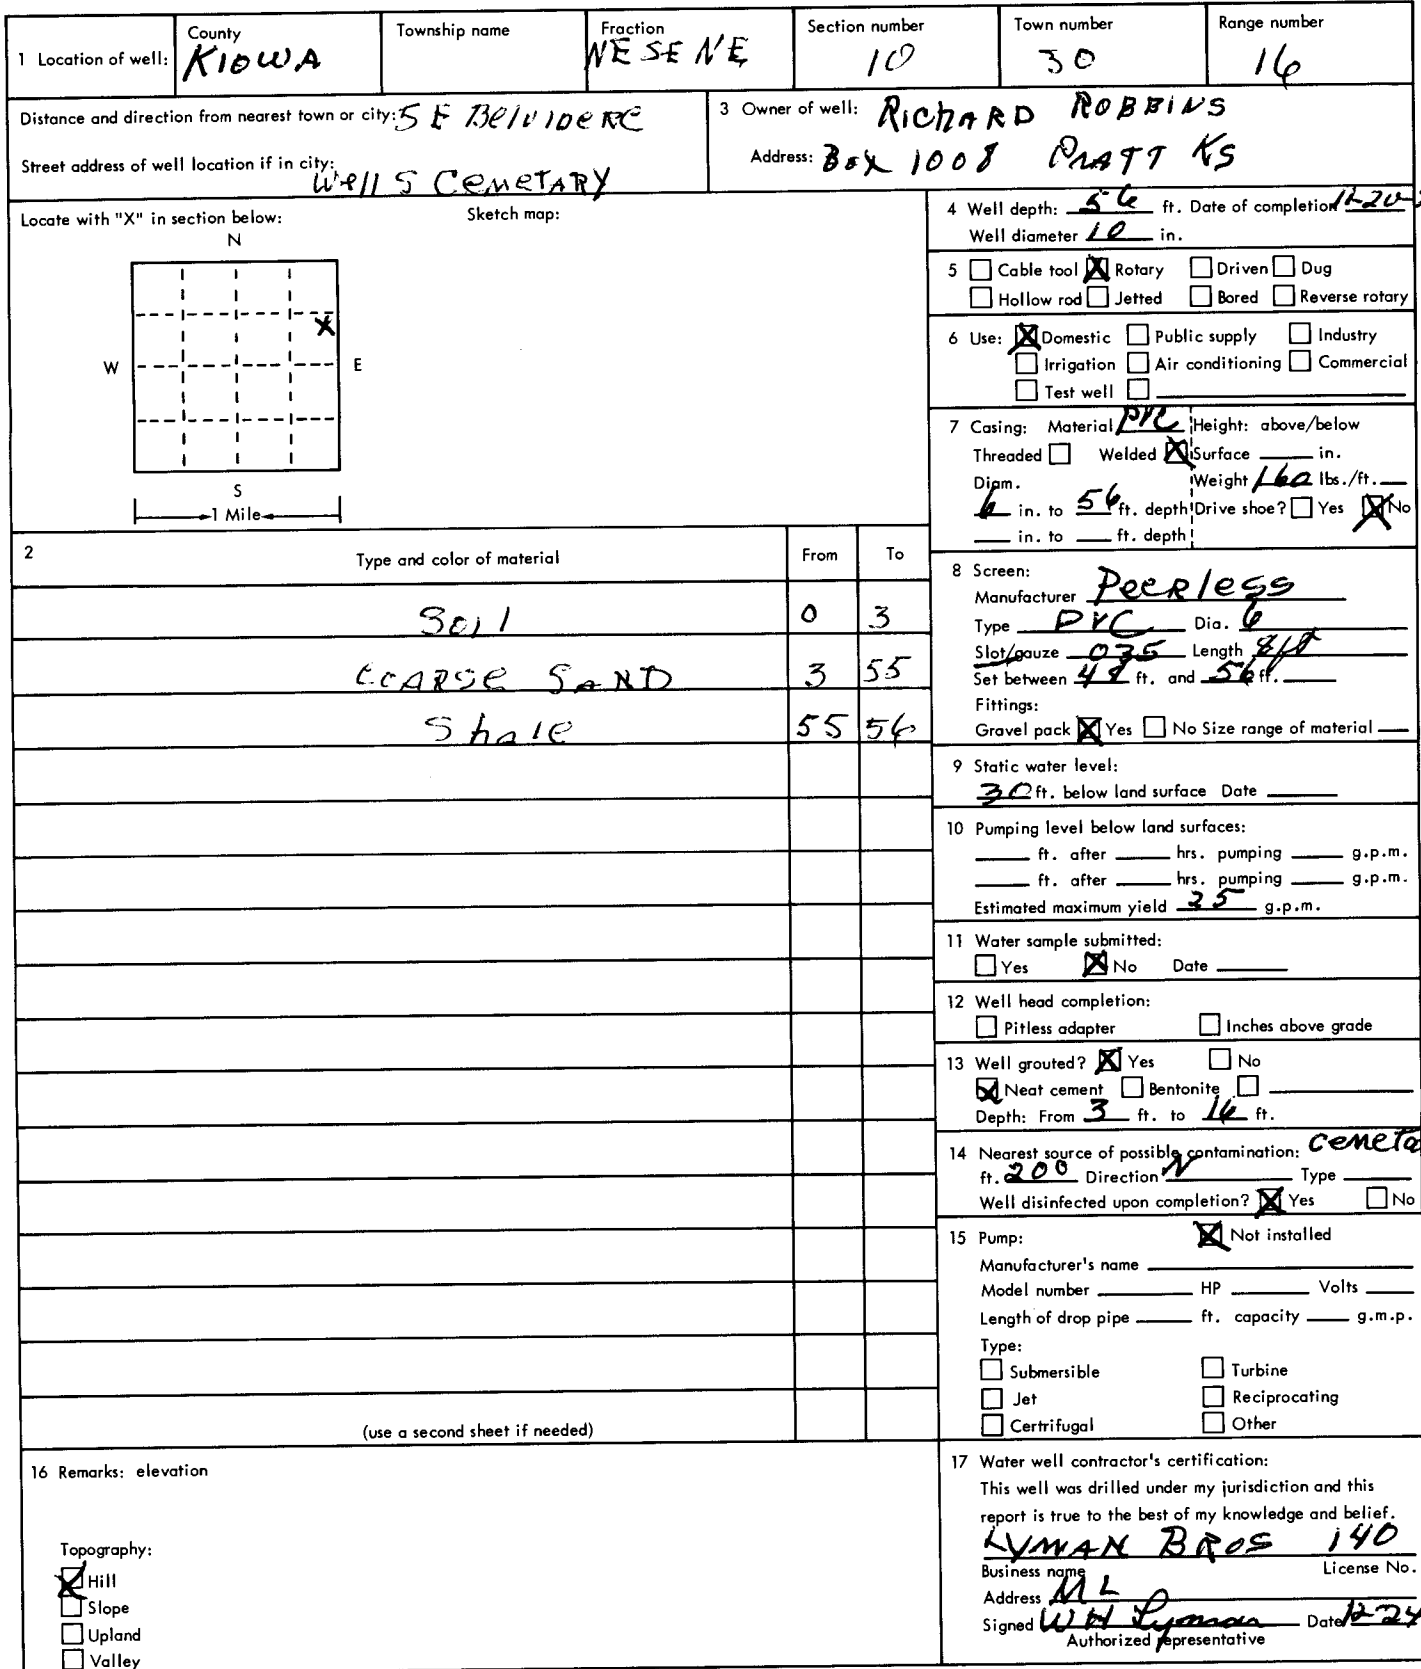 1 Location of well: County KIOWA Township name Fraction NE SE NE Section number 10 Town number 30 Range number 16
Distance and direction from nearest town or city: SE BelvIDeRe
Street address of well location if in city: Well S CemeTARY
3 Owner of well: RicHARD ROBBINS
Address: Box 1008 PRATT KS
Locate with "X" in section below: Sketch map:
N
W E
S
1 Mile
4 Well depth: 56 ft. Date of completion 11-20-
Well diameter 10 in.
5 Cable tool X Rotary Driven Dug
Hollow rod Jetted Bored Reverse rotary
6 Use: X Domestic Public supply Industry
Irrigation Air conditioning Commercial
Test well
7 Casing: Material PVC Height: above/below
Threaded Welded X Surface in.
Diam. Weight 160 lbs./ft.
6 in. to 56 ft. depth Drive shoe? Yes X No
in. to ft. depth
2 Type and color of material From To
Soil 0 3
COARSE SAND 3 55
Shale 55 56
(use a second sheet if needed)
8 Screen:
Manufacturer PeeRless
Type PVC Dia. 6
Slot/gauze 035 Length 8ft
Set between 48 ft. and 56 ft.
Fittings:
Gravel pack X Yes No Size range of material
9 Static water level:
30 ft. below land surface Date
10 Pumping level below land surfaces:
ft. after hrs. pumping g.p.m.
ft. after hrs. pumping g.p.m.
Estimated maximum yield 25 g.p.m.
11 Water sample submitted:
Yes X No Date
12 Well head completion:
Pitless adapter Inches above grade
13 Well grouted? X Yes No
X Neat cement Bentonite
Depth: From 3 ft. to 16 ft.
14 Nearest source of possible contamination: cemeta
ft. 200 Direction N Type
Well disinfected upon completion? X Yes No
15 Pump: X Not installed
Manufacturer's name
Model number HP Volts
Length of drop pipe ft. capacity g.m.p.
Type:
Submersible Turbine
Jet Reciprocating
Certrifugal Other
16 Remarks: elevation
Topography:
X Hill
Slope
Upland
Valley
17 Water well contractor's certification:
This well was drilled under my jurisdiction and this
report is true to the best of my knowledge and belief.
LYMAN BROS 140
Business name License No.
Address ML
Signed WH Lyman Date 12-24
Authorized representative